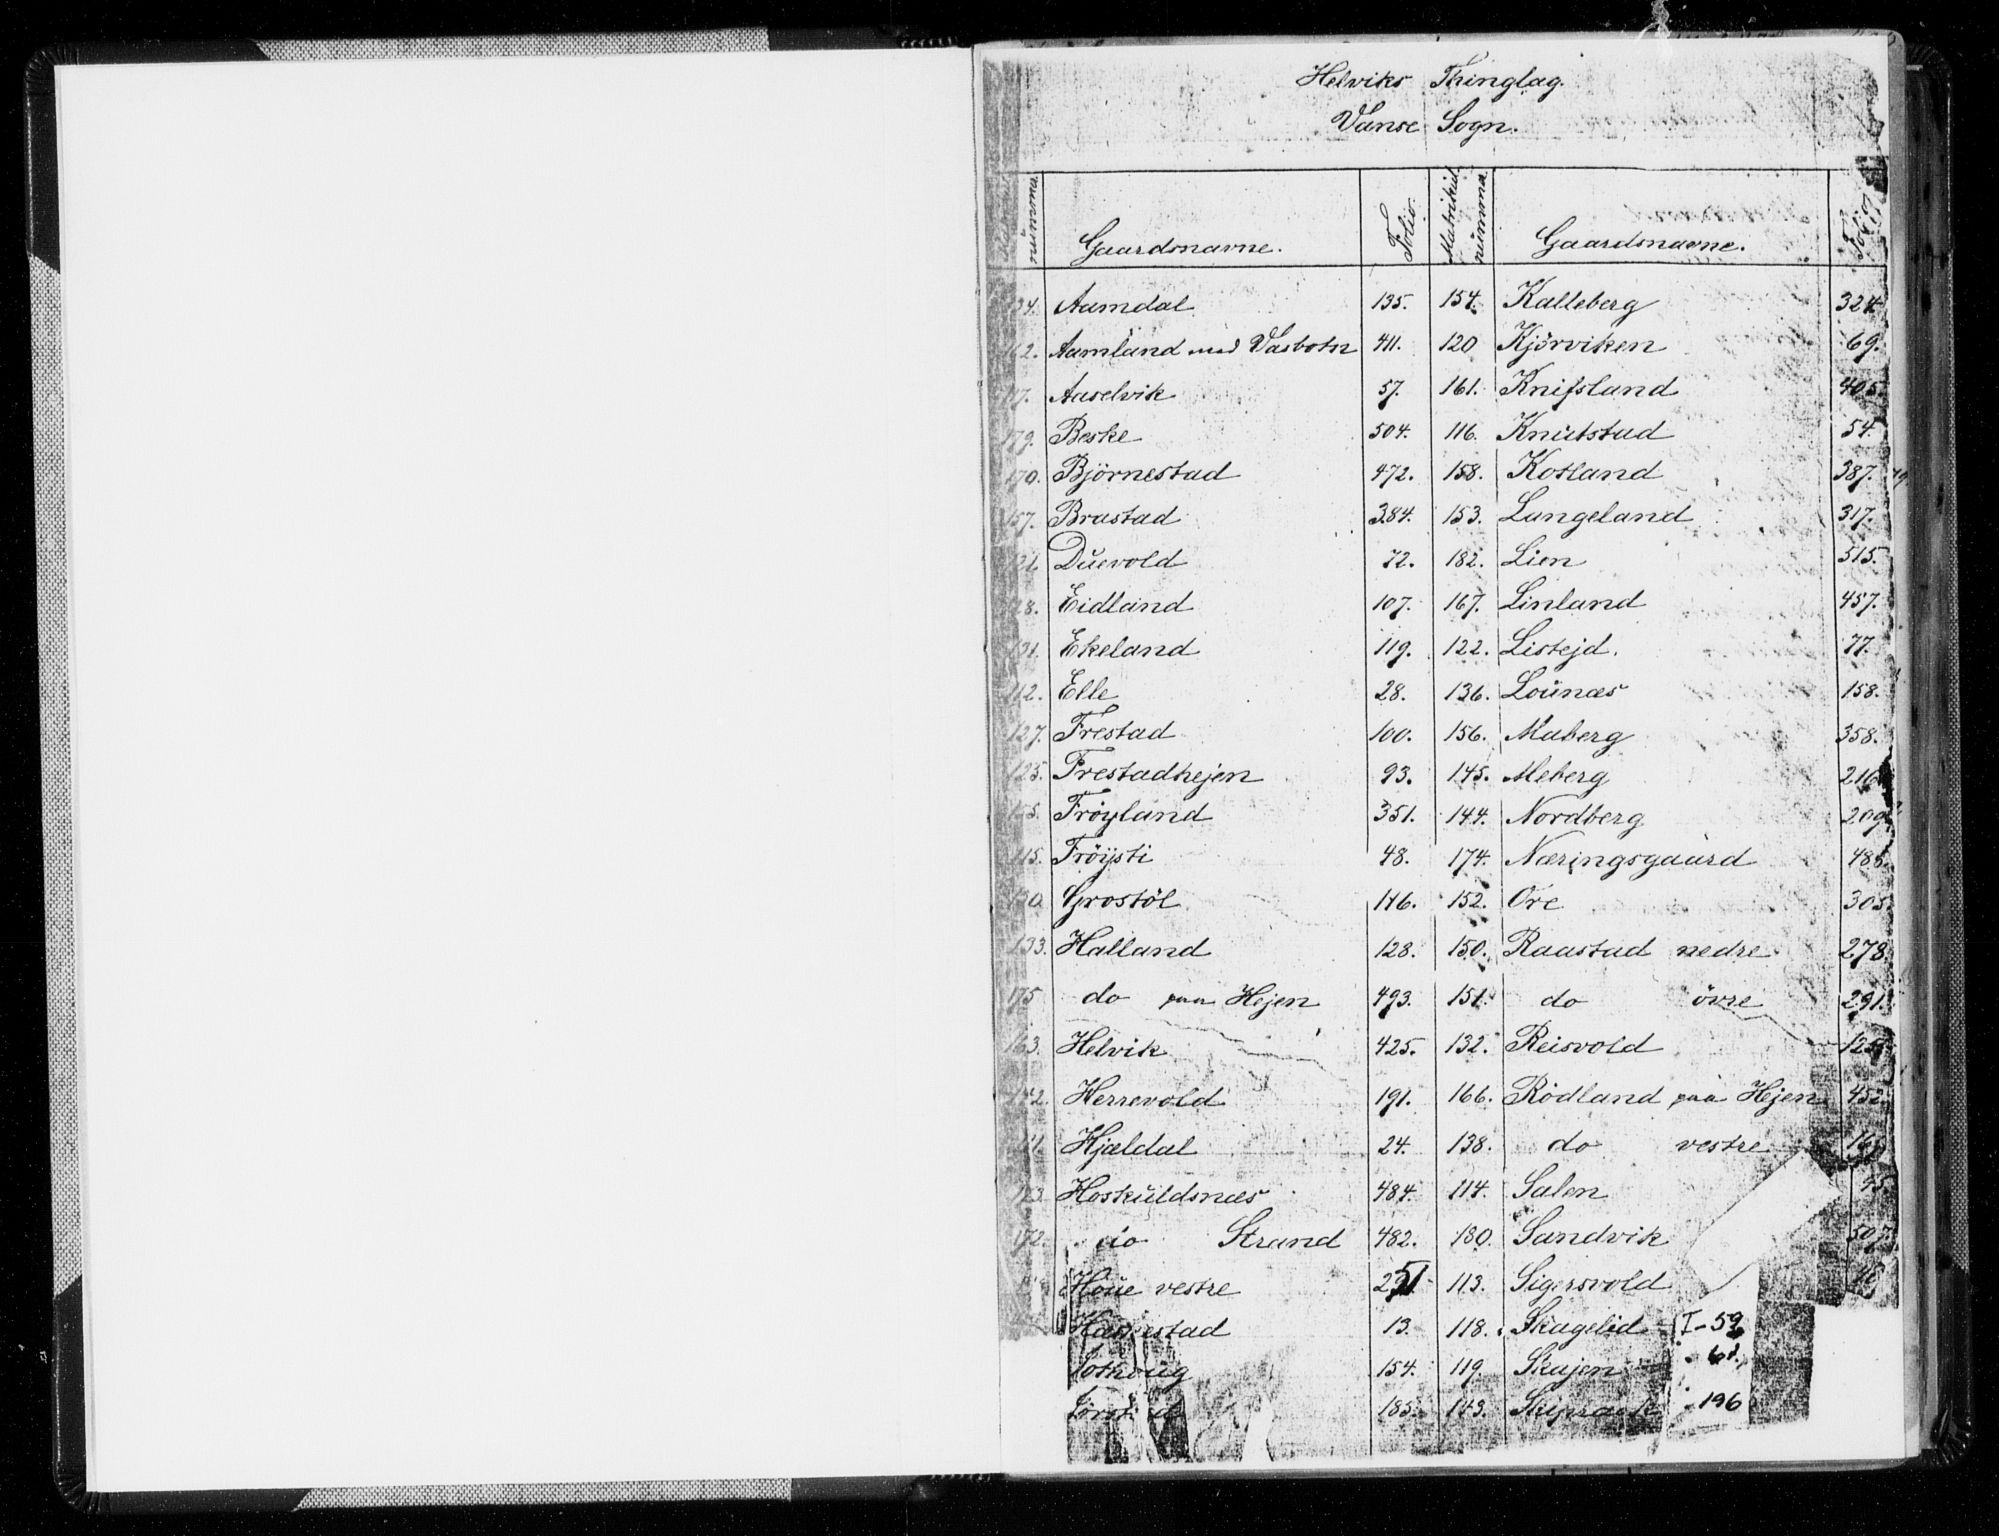 Helviks Thinglag.
Vanse Sogn.
nummer. Gaardsnavne. Folio. Matrikul nummer. Gaardsnavne. Folio
134. Aamdal 135. 154. Kalleberg 324.
162. Aamland med Vasbotn 411. 120 Kjörviken 69.
117. Aaselvik 57. 161. Knifsland 405.
179. Beske 504. 116. Knutstad 54.
170. Björnestad 472. 158. Kotland 387.
157. Brastad 384. 153. Langeland 317.
121. Duevold 72. 182. Lien 515.
128. Eidland 107. 167. Linland 457.
131. Ekeland 119. 122. Listejd. 77.
112. Elle 28. 136. Lounæs 158.
127. Frestad 100. 156. Maberg 358.
125. Frestadhejen 93. 145. Meberg 216
155. Fröyland 351. 144. Nordberg 209
115. Fröysti 48. 174. Næringsgaard 486.
130. Grostöl 116. 152. Ore 305
133. Halland 128. 150. Raastad nedre 278
175 do paa Hejen 493. 151. do övre 291.
163. Helvik 425. 132. Reisvold
142. Herrevold 191. 166. Rödland paa Hejen 452
111. Hjældal 24. 138. do vestre
173. Hoskuldsnæs 484. 114. Salen 45
172. do Strand 482. 180. Sandvik 507.
Höue vestre 251. 113. Sigersvold
stad 13. 118. Skagelid I-59
154. 119. Skajen
185. 143. - 196